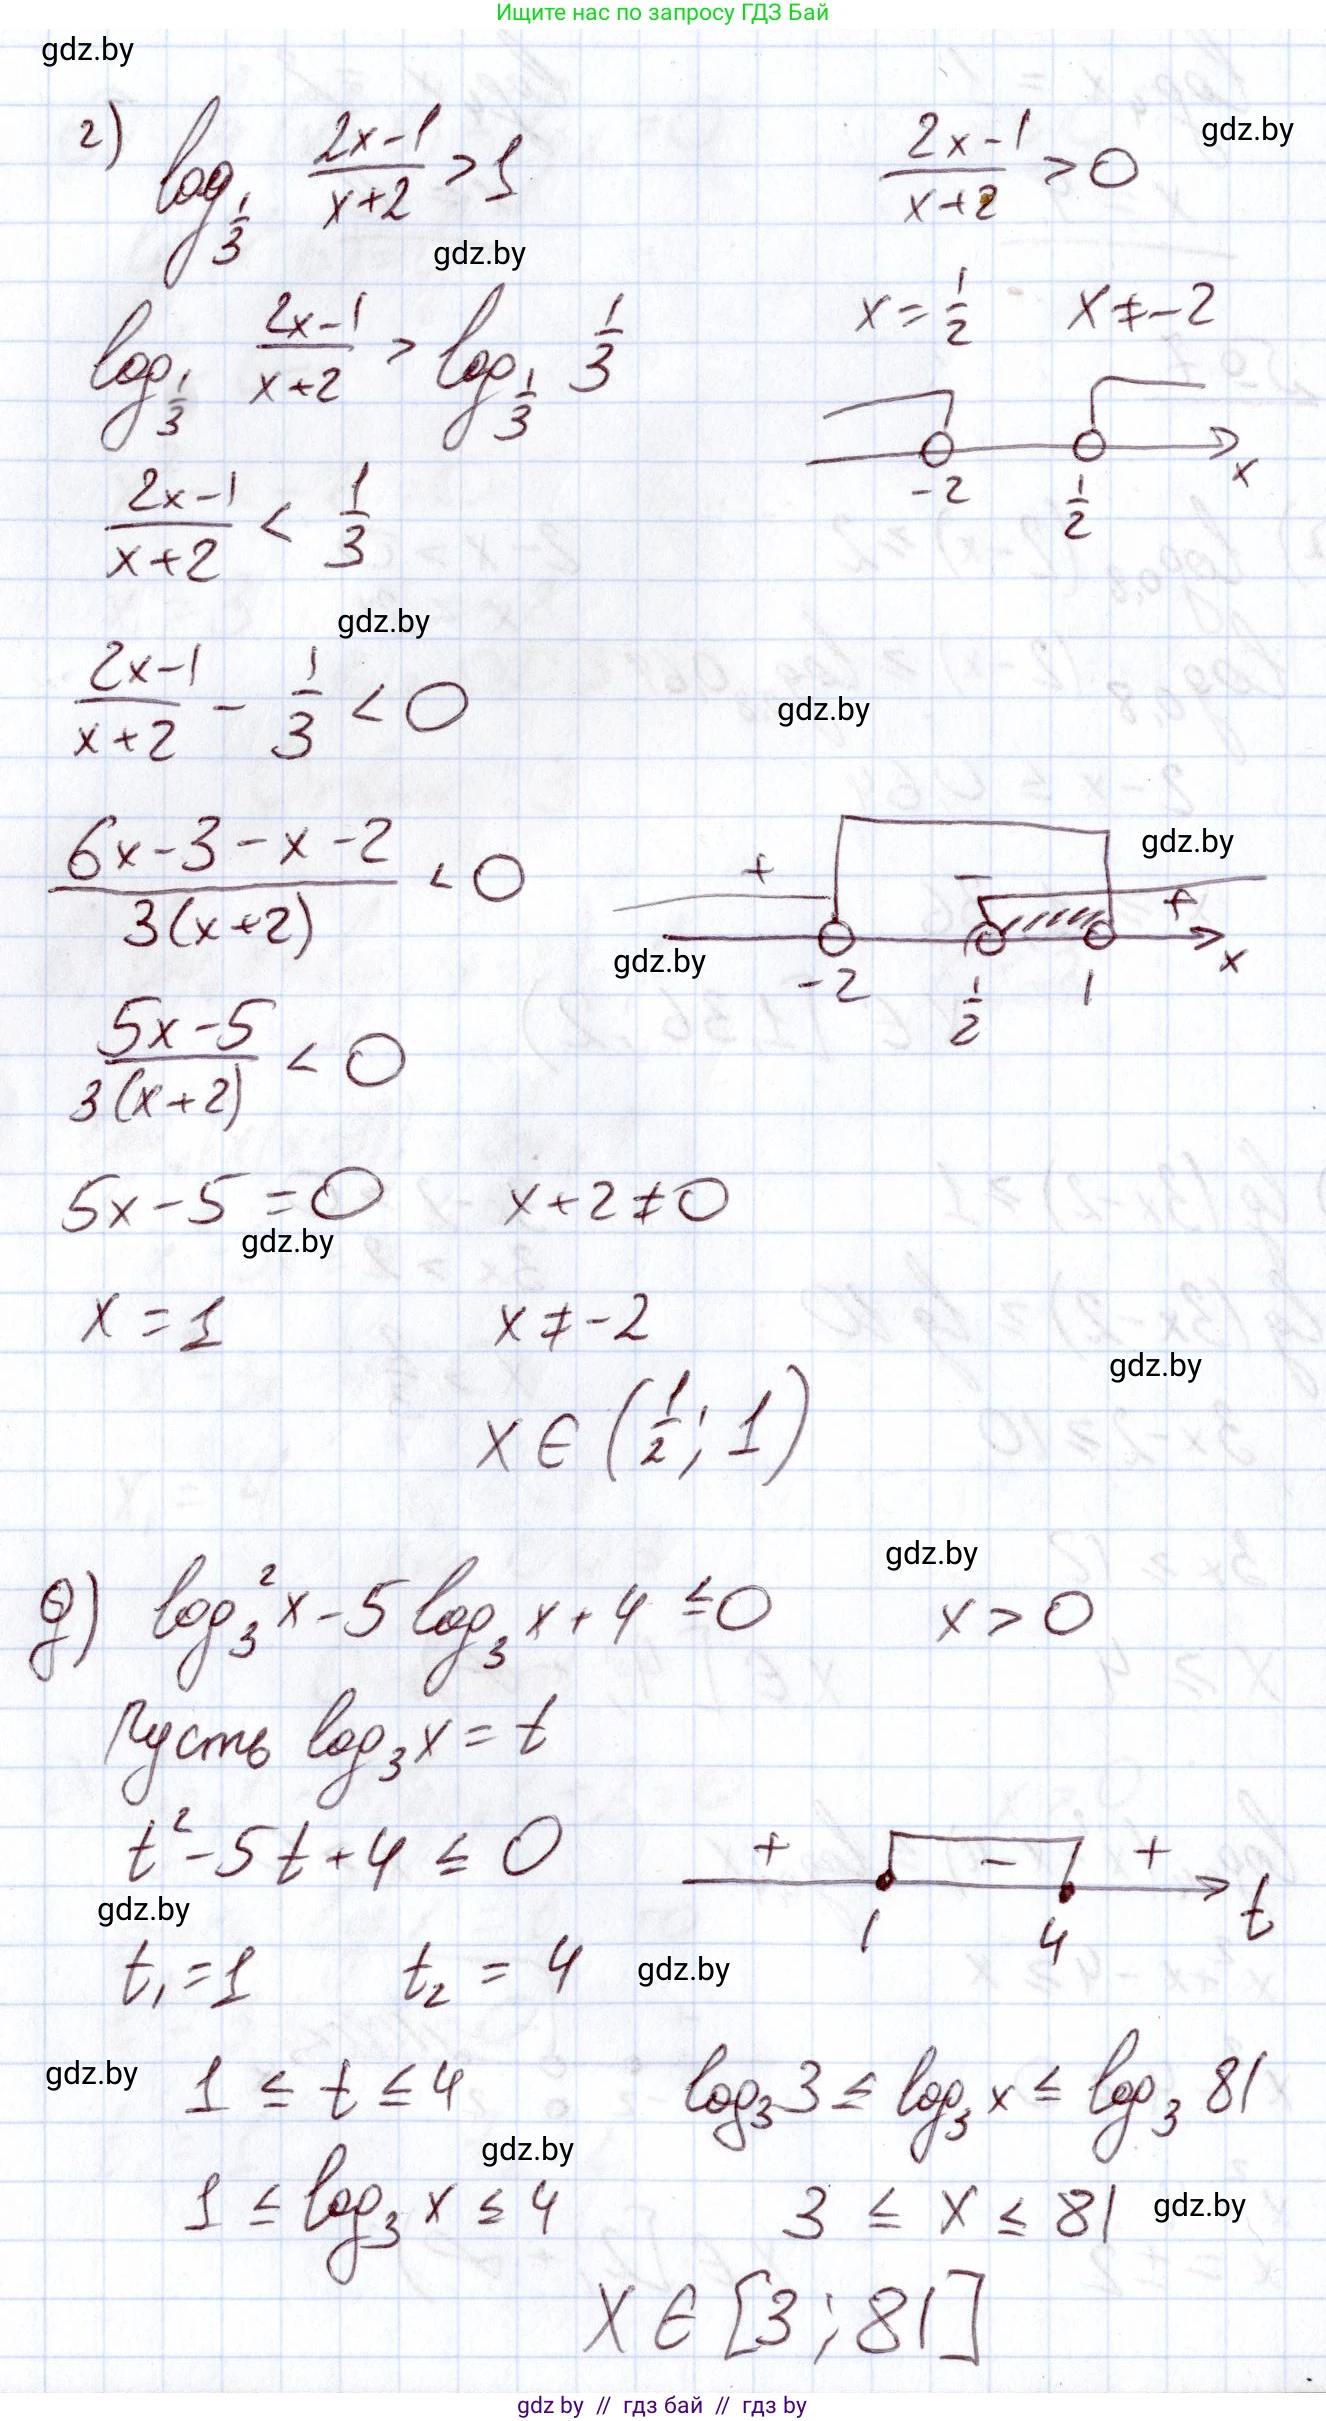 Ищите нас по запросу ГДЗ Бай
gdz.by
г) log_{1/3} (2x-1)/(x+2) > 1
(2x-1)/(x+2) > 0
gdz.by
gdz.by
x = 1/2 x ≠ -2
log_{1/3} (2x-1)/(x+2) > log_{1/3} 1/3
-2 1/2 x
(2x-1)/(x+2) < 1/3
gdz.by
(2x-1)/(x+2) - 1/3 < 0
gdz.by
(6x-3-x-2)/(3(x+2)) < 0
gdz.by
+ - +
gdz.by
-2 1/2 1 x
(5x-5)/(3(x+2)) < 0
5x-5=0 x+2≠0
gdz.by
x = 1 x ≠ -2
gdz.by
x ∈ (1/2; 1)
gdz.by
д) log₃²x - 5log₃x + 4 ≤ 0 x > 0
Пусть log₃x = t
t² - 5t + 4 ≤ 0
+ - +
1 4 t
gdz.by
t₁ = 1 t₂ = 4
gdz.by
gdz.by
1 ≤ t ≤ 4
log₃3 ≤ log₃x ≤ log₃81
gdz.by
1 ≤ log₃x ≤ 4
3 ≤ x ≤ 81
gdz.by
x ∈ [3; 81]
gdz by // гдз бай // гдз by